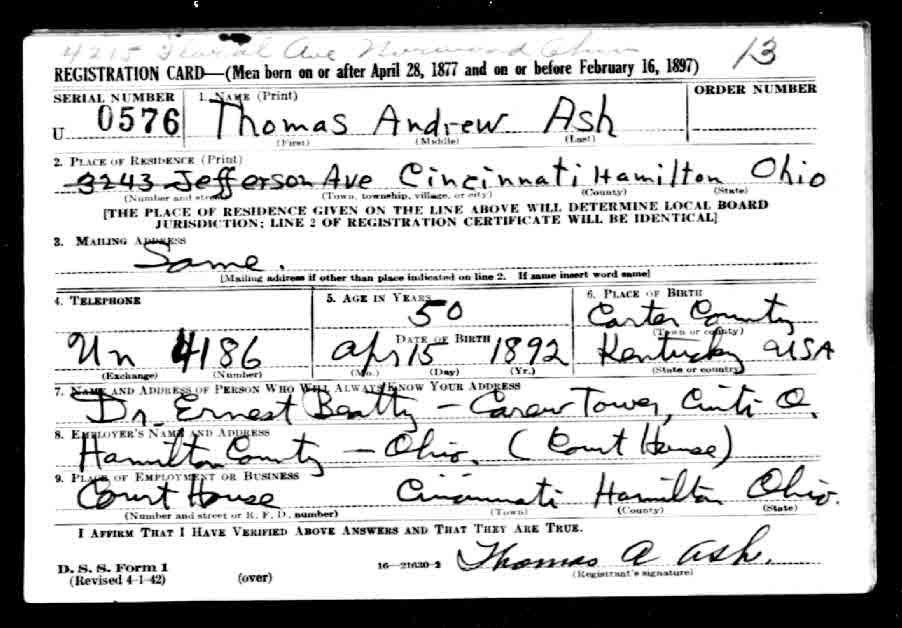 4215 Floral Ave Norwood Ohio
13
REGISTRATION CARD—(Men born on or after April 28, 1877 and on or before February 16, 1897)
SERIAL NUMBER 1. NAME (Print) ORDER NUMBER
U 0576 Thomas Andrew Ash
(First) (Middle) (Last)
2. PLACE OF RESIDENCE (Print)
3243 Jefferson Ave Cincinnati Hamilton Ohio
(Number and street) (Town, township, village, or city) (County) (State)
[THE PLACE OF RESIDENCE GIVEN ON THE LINE ABOVE WILL DETERMINE LOCAL BOARD
JURISDICTION; LINE 2 OF REGISTRATION CERTIFICATE WILL BE IDENTICAL]
3. MAILING ADDRESS
Same.
[Mailing address if other than place indicated on line 2. If same insert word same]
4. TELEPHONE 5. AGE IN YEARS 6. PLACE OF BIRTH
50 Carter County
DATE OF BIRTH (Town or county)
Un 4186 Apr 15 1892 Kentucky USA
(Exchange) (Number) (Mo.) (Day) (Yr.) (State or country)
7. NAME AND ADDRESS OF PERSON WHO WILL ALWAYS KNOW YOUR ADDRESS
Dr. Ernest Beatty — Carew Tower, Cinti O.
8. EMPLOYER'S NAME AND ADDRESS
Hamilton County — Ohio. (Court House)
9. PLACE OF EMPLOYMENT OR BUSINESS
Court House Cincinnati Hamilton Ohio.
(Number and street or R. F. D. number) (Town) (County) (State)
I AFFIRM THAT I HAVE VERIFIED ABOVE ANSWERS AND THAT THEY ARE TRUE.
Thomas A Ash.
D. S. S. Form 1 16—21630-2 (Registrant's signature)
(Revised 4-1-42) (over)